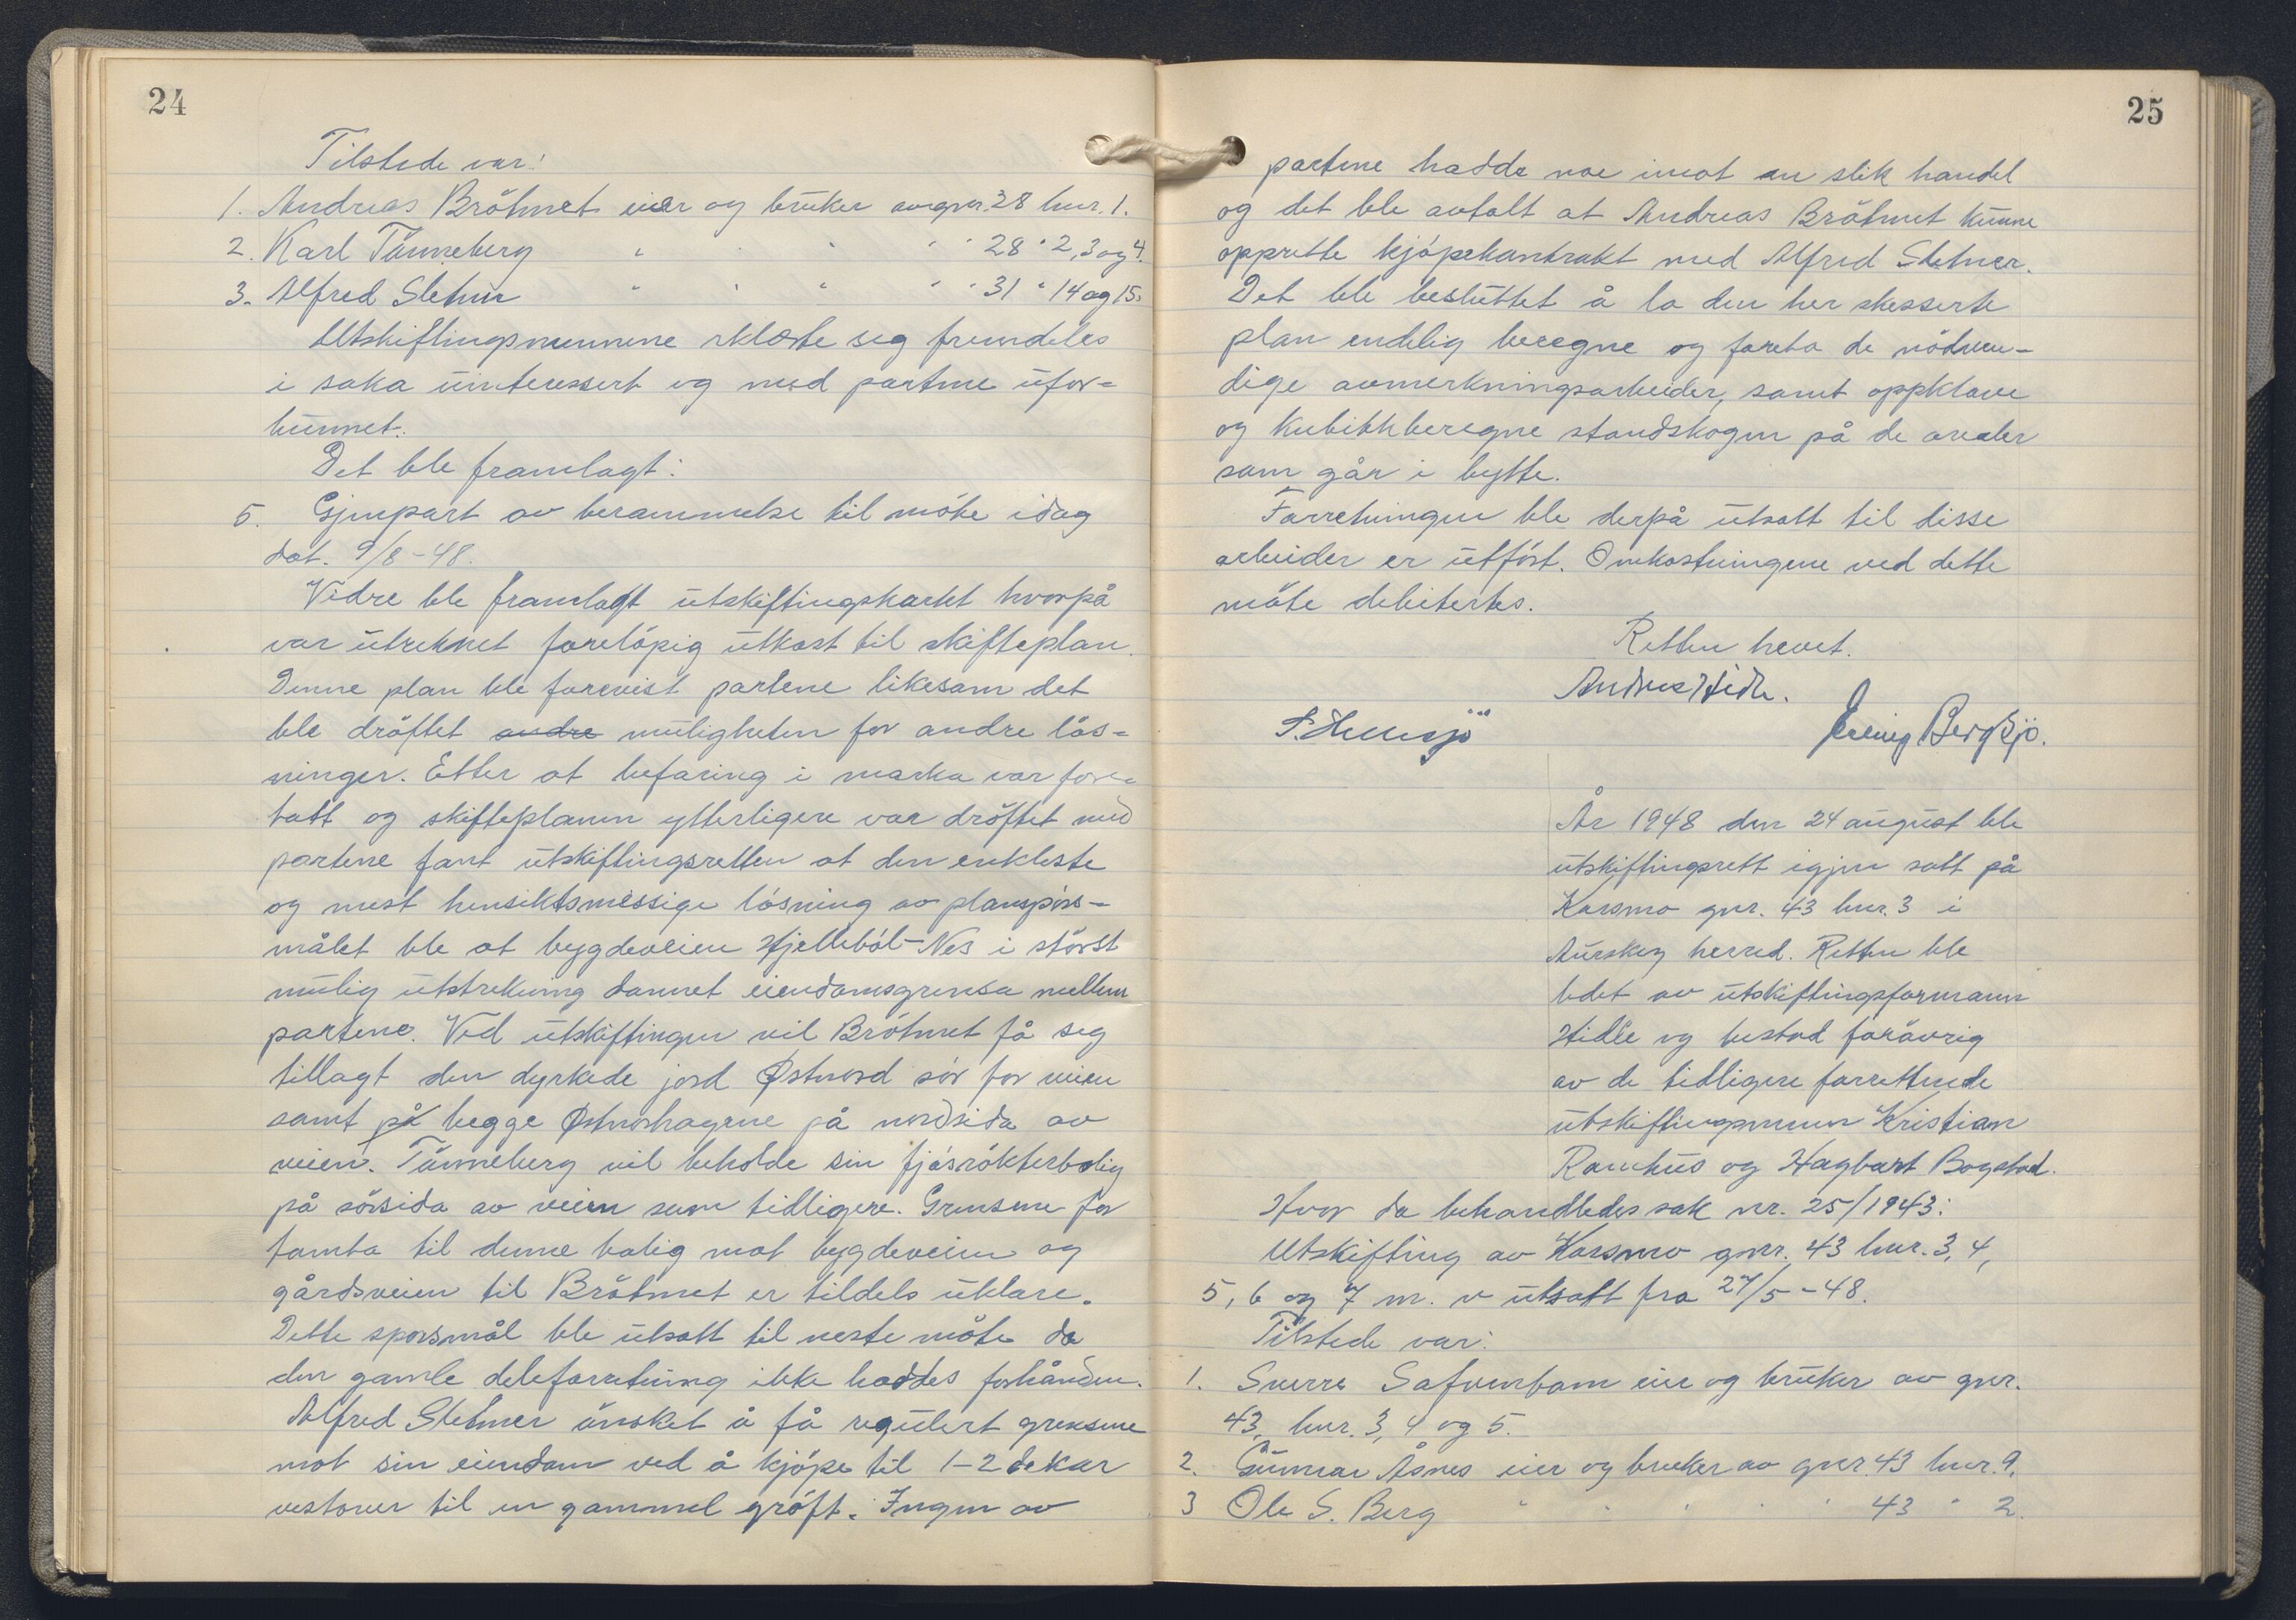 24
Tilstede var:
1. Andreas Bråtnet eier og bruker av gnr. 28 bnr. 1.
2. Karl Tønneberg " " " " " 28 " 2, 3 og 4.
3. Alfred Sletner " " " " " 31 " 14 og 15.
Utskiftingsmennene erklærte seg fremdeles
i saka uinteressert og med partene ufor-
bunnet.
Det ble framlagt:
5. Gjenpart av berammelse til möte idag
dat. 9/8-48.
Vidre ble framlagt utskiftingskartet hvorpå
var utreknet forelöpig utkast til skifteplan.
Denne plan ble forevist partene likesom det
ble dröftet andre muligheten for andre lös-
ninger. Etter at befaring i marka var fore-
tatt og skifteplanen ytterligere var dröftet med
partene fant utskiftingsretten at den enkleste
og mest hensiktsmessige lösning av planspörs-
målet ble at bygdeveien Hjelleböl-Nes i störst
mulig utstrekning dannet eiendomsgrensa mellem
partene. Ved utskiftingen vil Bråtnet få seg
tillagt den dyrkede jord Østnord sör for veien
samt på begge Østnorhagene på nordsida av
veien. Tønneberg vil beholde sin fjösrökterbolig
på sörsida av veien som tidligere. Grensene for
tomta til denne bolig mot bygdeveien og
gårdsveien til Bråtnet er tildels uklare.
Dette sporsmål ble utsatt til neste möte da
den gamle deleforretning ikke haddes forhånden.
Alfred Sletner önsket å få regulert grensene
mot sin eiendom ved å kjöpe til 1-2 dekar
vestover til en gammel gröft. Ingen av
25
partene hadde noe imot en slik handel
og det ble avtalt at Andreas Bråtnet kunne
opprette kjöpekontrakt med Alfred Sletner.
Det ble besluttet å la den her skesserte
plan endelig beregne og foreta de nödven-
dige avmerkningsarbeider, samt oppklave
og kubikkberegne standskogen på de arealer
som går i bytte.
Forretningen ble derpå utsatt til disse
arbeider er utfört. Omkostningene ved dette
möte debitertes.
Retten hevet.
Andreas Hidle.
P. Hellesjö Erling Bergsjö.
År 1948 den 24 august ble
utskiftingsrett igjen satt på
Korsmo gnr. 43 bnr. 3 i
Aurskog herred. Retten ble
ledet av utskiftingsformann
Hidle og bestod foråvrig
av de tidligere forrettende
utskiftingsmenn Kristian
Ramhus og Hagbart Bogstad.
Hvor da behandledes sak nr. 25/1943:
Utskifting av Korsmo gnr. 43 bnr. 3, 4,
5, 6 og 7 m. v utsatt fra 27/5-48.
Tilstede var:
1. Sverre eier og bruker av gnr.
43, bnr. 3, 4 og 5.
2. Gunnar Åsnes eier og bruker av gnr. 43 bnr. 9.
3 Ole S. Berg " " " " " 43 " 2.